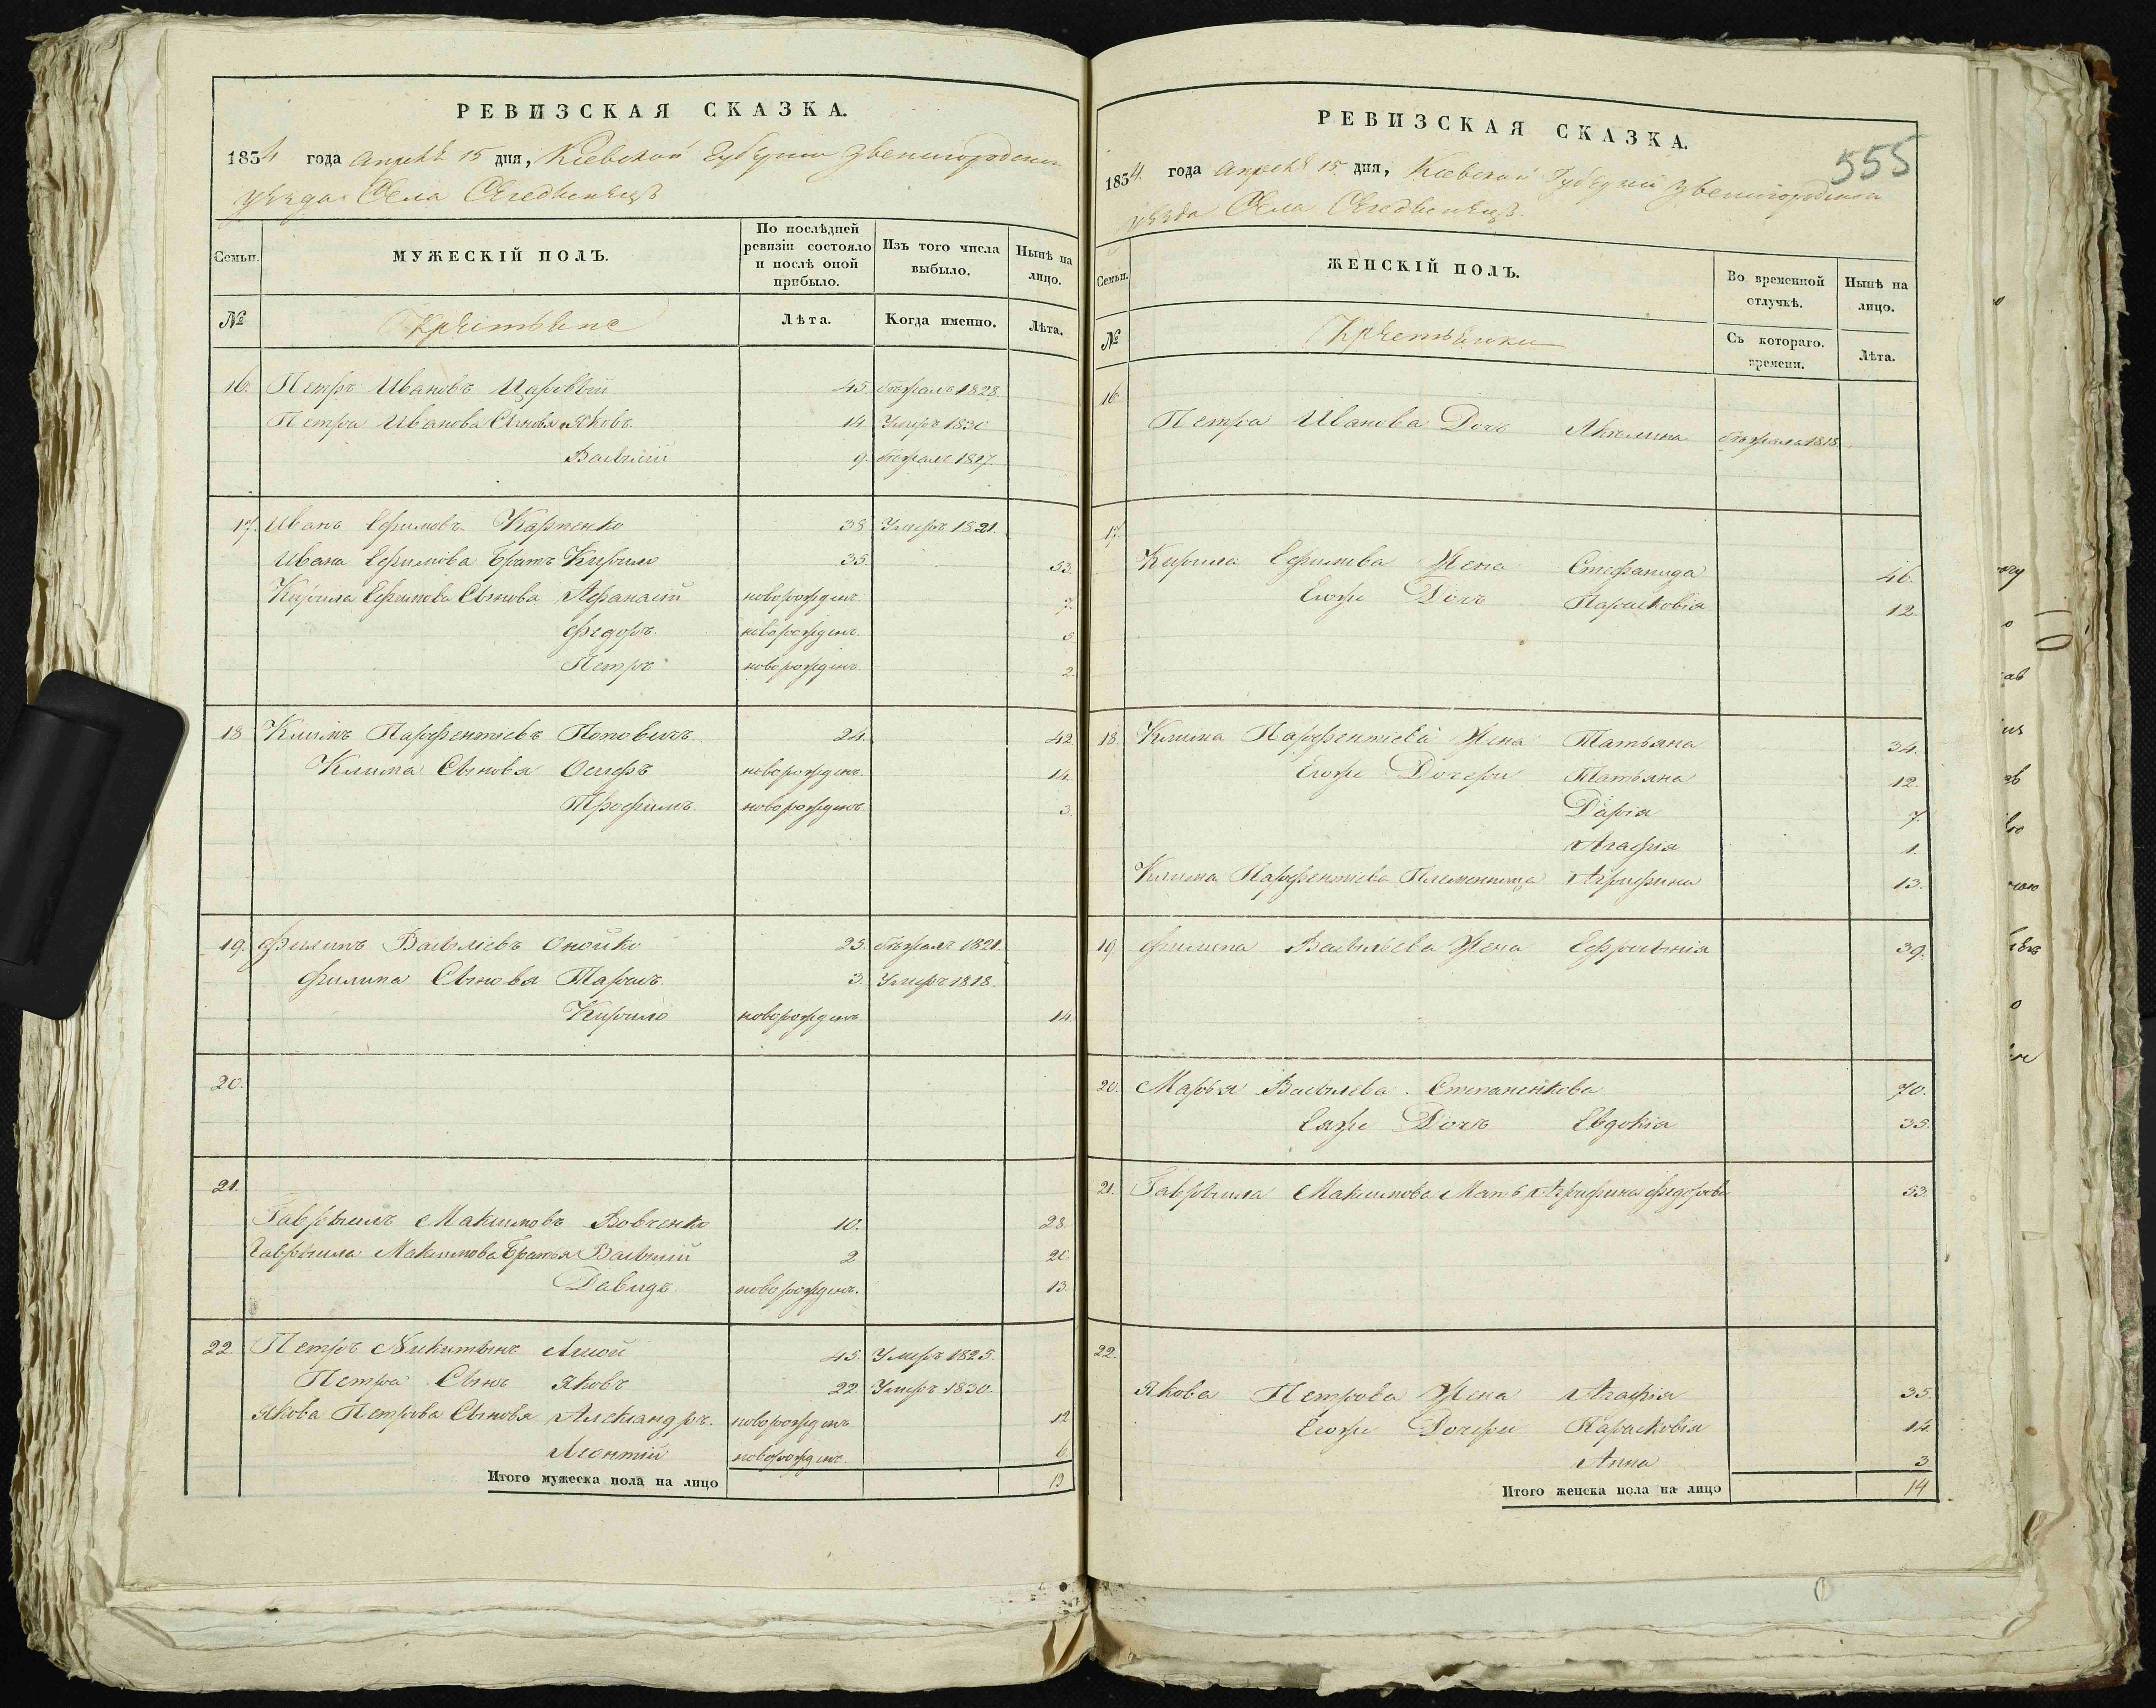 РЕВИЗСКАЯ СКАЗКА.
1834 года Апрѣля 15 дня, Кіевской Губерніи Звенигородскаго
уѣзда Села
Семьи.
МУЖЕСКІЙ ПОЛЪ.
По послѣдней ревизіи состояло и послѣ оной прибыло.
Изъ того числа выбыло.
Нынѣ на лицо.
№
Крестьяне
Лѣта.
Когда именно.
Лѣта.
16. Петръ Ивановъ 45 бѣжалъ 1828
Петра Иванова Сыновья Яковъ 14 Умеръ 1830
Василій 9. бѣжалъ 1817.
17. Иванъ Ефимовъ Карпенко 38 Умеръ 1821.
Ивана Ефимова Братъ Кирило 35. 53.
Кирила Ефимова Сынова Афанасій новорожден. 7.
Федоръ новорожден. 5
Петръ новорожден. 2.
18 Климъ Парфентіевъ Поповичъ 24. 42
Клима Сыновья Осипъ новорожден. 14.
Трофимъ новорожден. 3.
19. Филипъ Васильевъ Онойко 25. бѣжалъ 1821.
Филипа Сыновья Тарасъ 3. Умеръ 1818.
Кирило новорожден. 14.
20.
21.
Гаврыилъ Максимовъ Вовченко 10. 28
Гаврыила Максимова Братья Василій 2 20
Давидъ новорожден. 13.
22. Петръ Никитынъ 45. Умеръ 1825.
Петра Сынъ Яковъ 22 Умеръ 1830.
Якова Петрова Сыновья Александръ новорожден 12
Леонтій новорожден 6.
Итого мужеска пола на лицо 13
РЕВИЗСКАЯ СКАЗКА.
555
1834 года Апрѣля 15 дня, Кіевской Губерніи Звенигородскаго
уѣзда Села
Семьи.
ЖЕНСКІЙ ПОЛЪ.
Во временной отлучкѣ.
Нынѣ на лицо.
№
Крестьянки
Съ котораго времени.
Лѣта.
16. Петра Иванова Дочь Акилина бѣжала 1818
17. Кирила Ефимова Жена Стефанида 46.
Егоже Дочь Парасковія 12.
18. Клима Парфентіева Жена Татьяна 34.
Егоже Дочери Татьяна 12.
Дарія 7.
Агафія 1.
Клима Парфентіева Племенница Агрифина 13.
19. Филипа Васильева Жена Ефросинія 39.
20. Марья Васильева Степаненкова 70.
Еяже Дочь Евдокія 35.
21. Гаврыила Максимова Мать Агрифина Федорова 53.
22.
Якова Петрова Жена Агафія 35.
Егоже Дочери Парасковія 14.
Анна 3
Итого женска пола на лицо 14